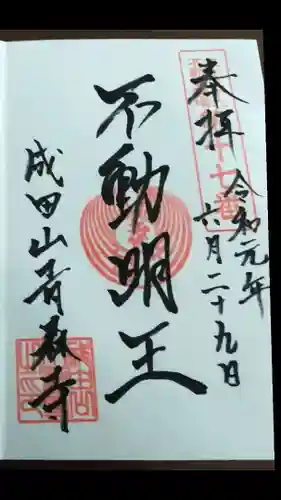 奉拝
令和元年
六月二十九日
不動明王
成田山青森寺
十七番